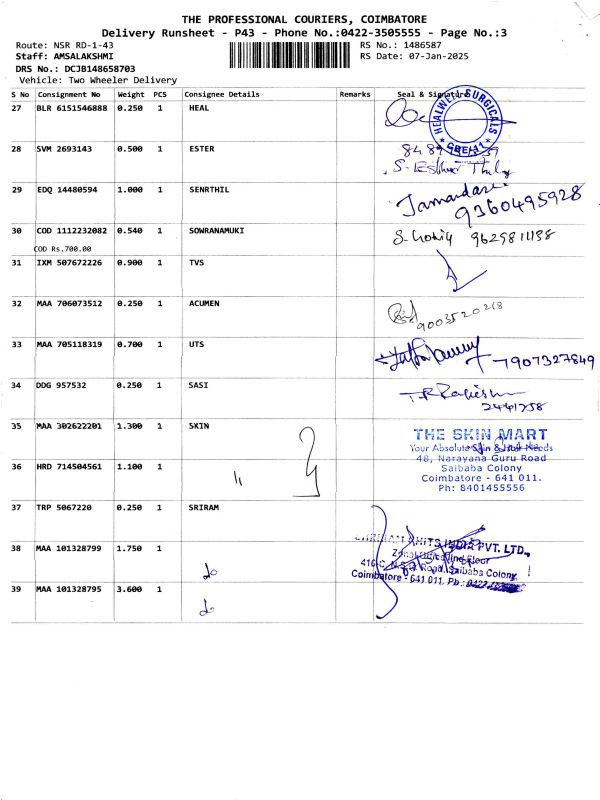 THE PROFESSIONAL COURIERS, COIMBATORE
Delivery Runsheet - P43 - Phone No.:0422-3505555 - Page No.:3
Route: NSR RD-1-43 RS No.: 1486587
Staff: AMSALAKSHMI RS Date: 07-Jan-2025
DRS No.: DCJB148658703
Vehicle: Two Wheeler Delivery
S No Consignment No Weight PCS Consignee Details Remarks Seal & Signature
27 BLR 6151546888 0.250 1 HEAL
HEALWELL SURGICALS
CBE-11
28 SVM 2693143 0.500 1 ESTER
S. Esther
29 EDQ 14480594 1.000 1 SENRTHIL
9360495928
30 COD 1112232082 0.540 1 SOWRANAMUKI
COD Rs.700.00
31 IXM 507672226 0.900 1 TVS
32 MAA 706073512 0.250 1 ACUMEN
9003520218
33 MAA 705118319 0.700 1 UTS
7907327849
34 DDG 957532 0.250 1 SASI
2441758
35 MAA 302622201 1.300 1 SKIN
THE SKIN MART
Your Absolute Skin & Hair Needs
48, Narayana Guru Road
Saibaba Colony
Coimbatore - 641 011.
Ph: 8401455556
36 HRD 714504561 1.100 1 "
37 TRP 5067220 0.250 1 SRIRAM
38 MAA 101328799 1.750 1 do
INDIA PVT. LTD.,
Floor
Road, Saibaba Colony,
Coimbatore - 641 011. Ph.: 0422
39 MAA 101328795 3.600 1 do